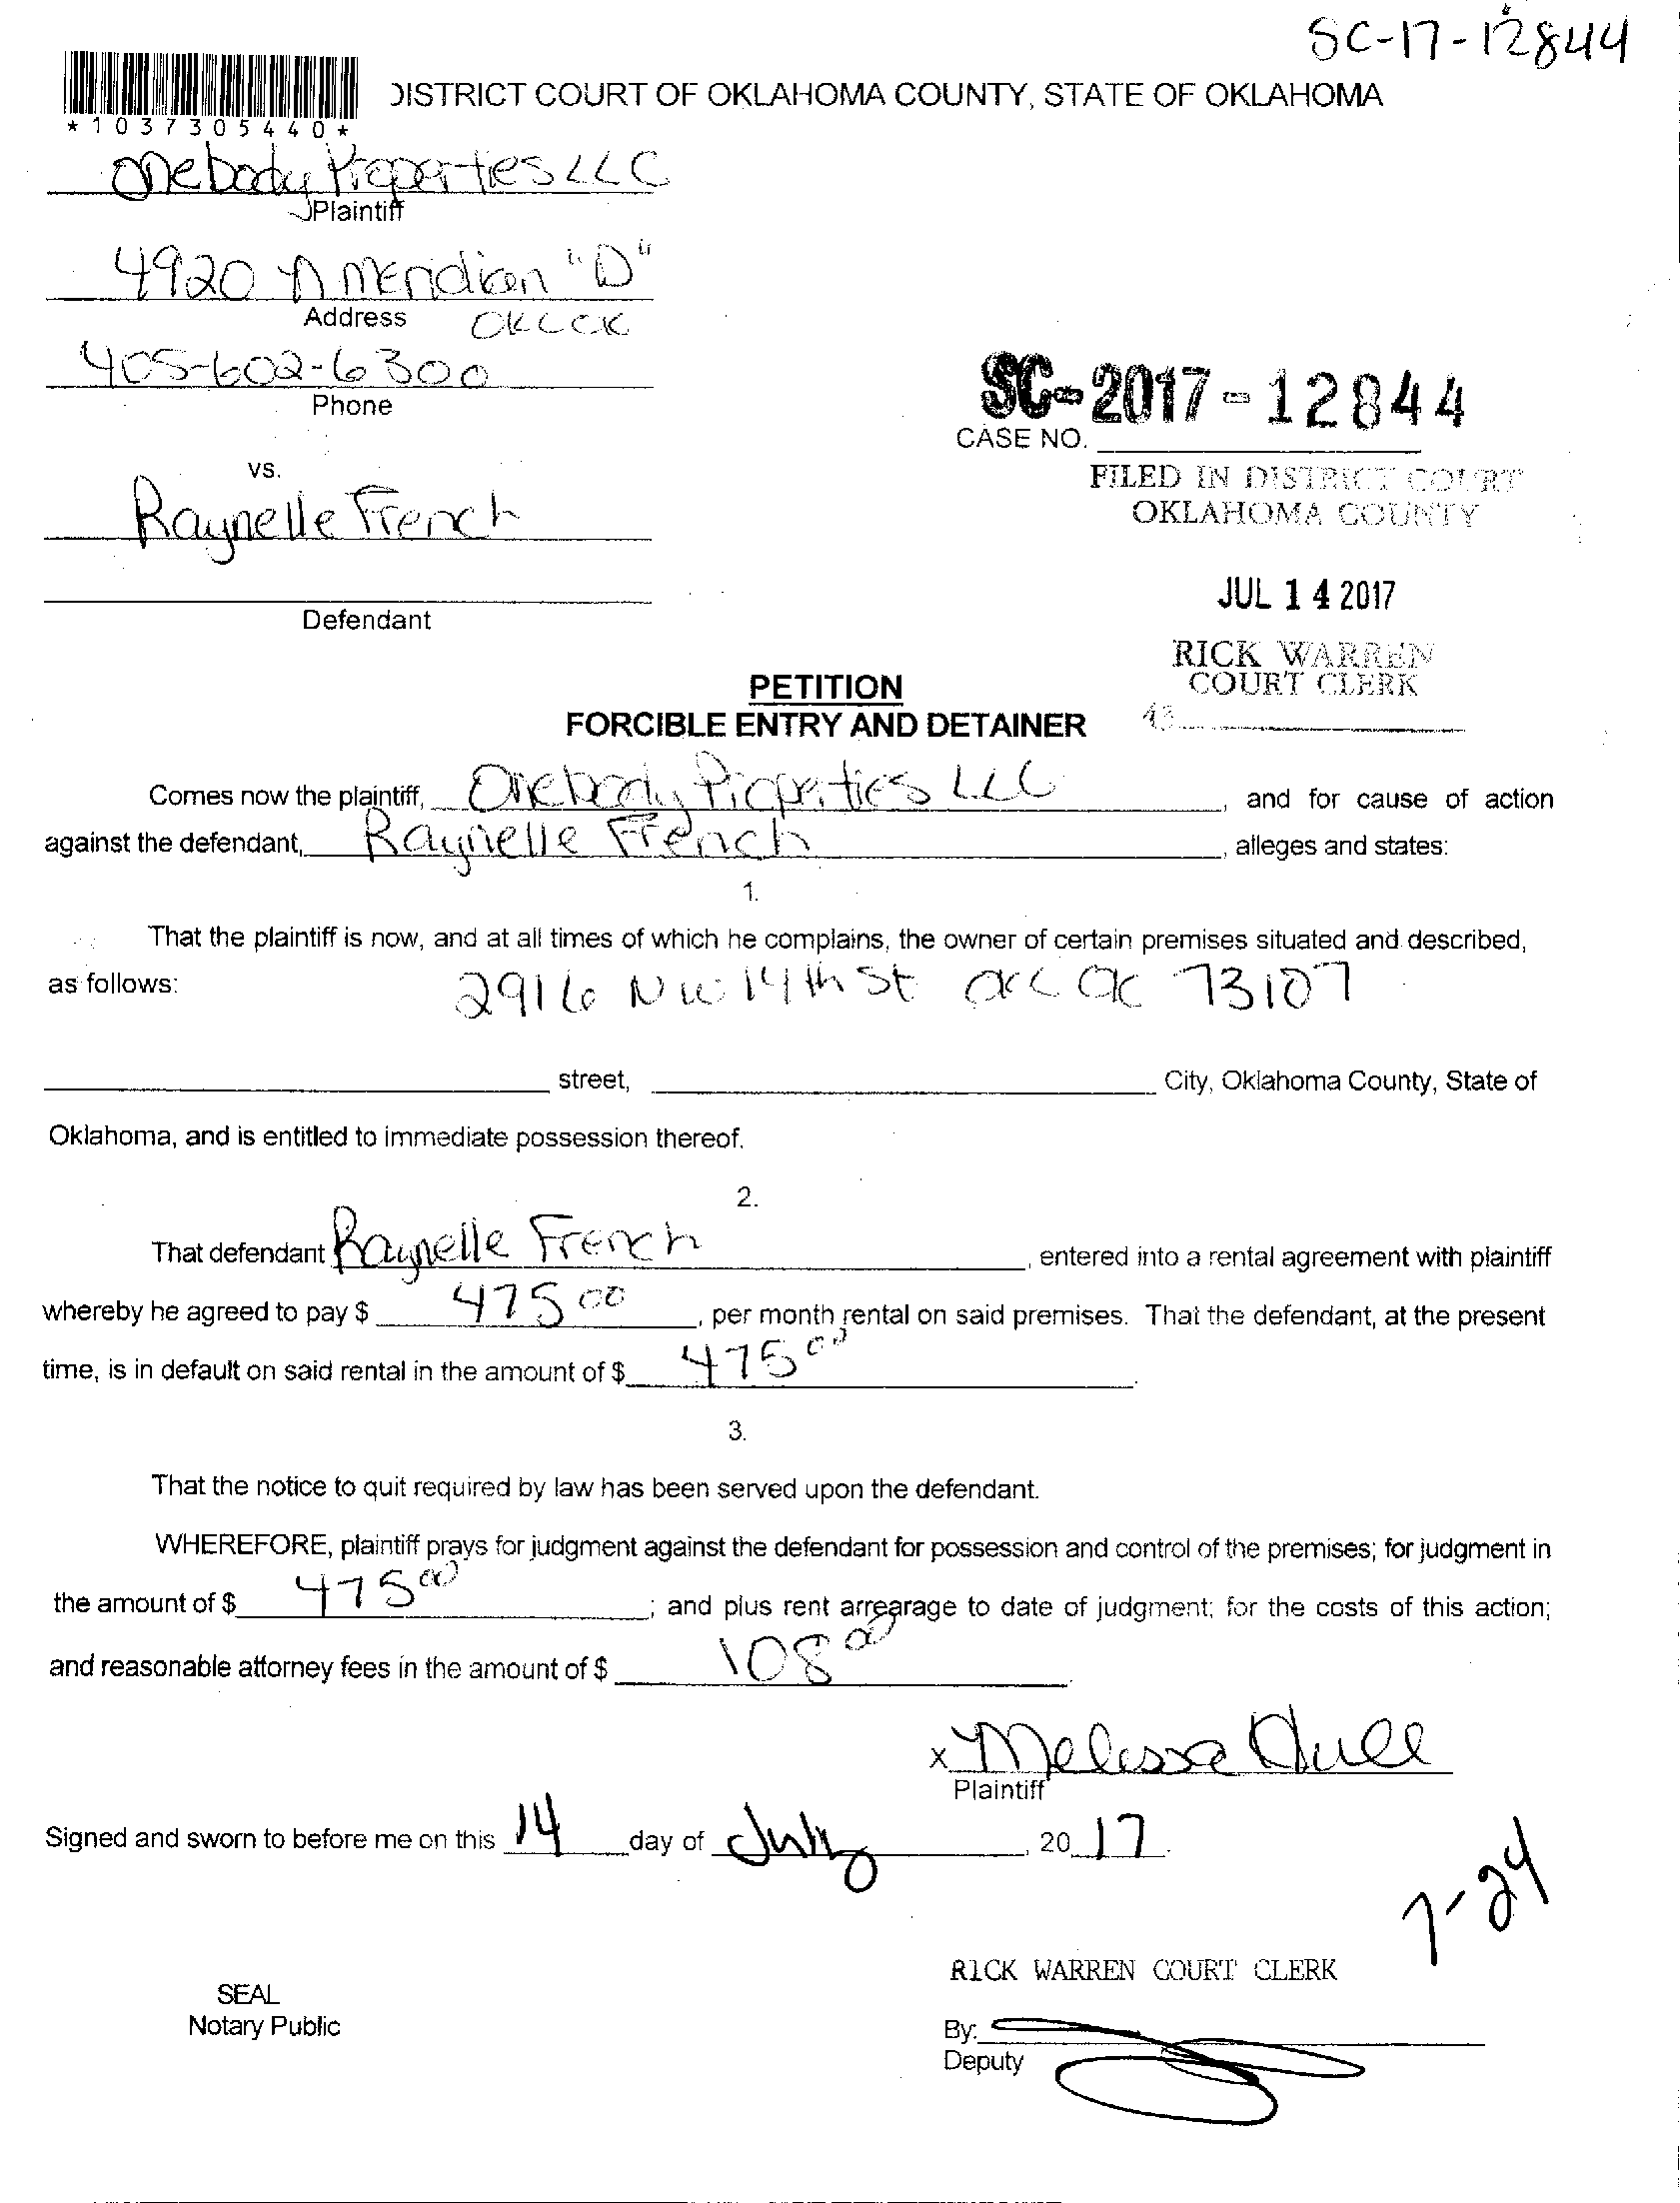 SC-17-12844
DISTRICT COURT OF OKLAHOMA COUNTY, STATE OF OKLAHOMA
*1037305440*
Onebody Properties LLC
Plaintiff
4920 N Meridian "D"
Address OKC OK
405-602-6300
Phone
SC-2017-12844
CASE NO.
FILED IN DISTRICT COURT
OKLAHOMA COUNTY
vs.
Raynelle French
JUL 14 2017
Defendant
RICK WARREN
COURT CLERK
43
PETITION
FORCIBLE ENTRY AND DETAINER
Comes now the plaintiff, Onebody Properties LLC, and for cause of action
against the defendant, Raynelle French, alleges and states:
1.
That the plaintiff is now, and at all times of which he complains, the owner of certain premises situated and described,
as follows: 2916 NW 14th St OKC OK 73107
street, City, Oklahoma County, State of
Oklahoma, and is entitled to immediate possession thereof.
2.
That defendant Raynelle French, entered into a rental agreement with plaintiff
whereby he agreed to pay $ 475 00, per month rental on said premises. That the defendant, at the present
time, is in default on said rental in the amount of $ 475 00.
3.
That the notice to quit required by law has been served upon the defendant.
WHEREFORE, plaintiff prays for judgment against the defendant for possession and control of the premises; for judgment in
the amount of $ 475 00; and plus rent arrearage to date of judgment; for the costs of this action;
and reasonable attorney fees in the amount of $ 108 00.
x Melissa Hull
Plaintiff
Signed and sworn to before me on this 14 day of July, 20 17.
7-24
RICK WARREN COURT CLERK
SEAL
Notary Public
By:
Deputy